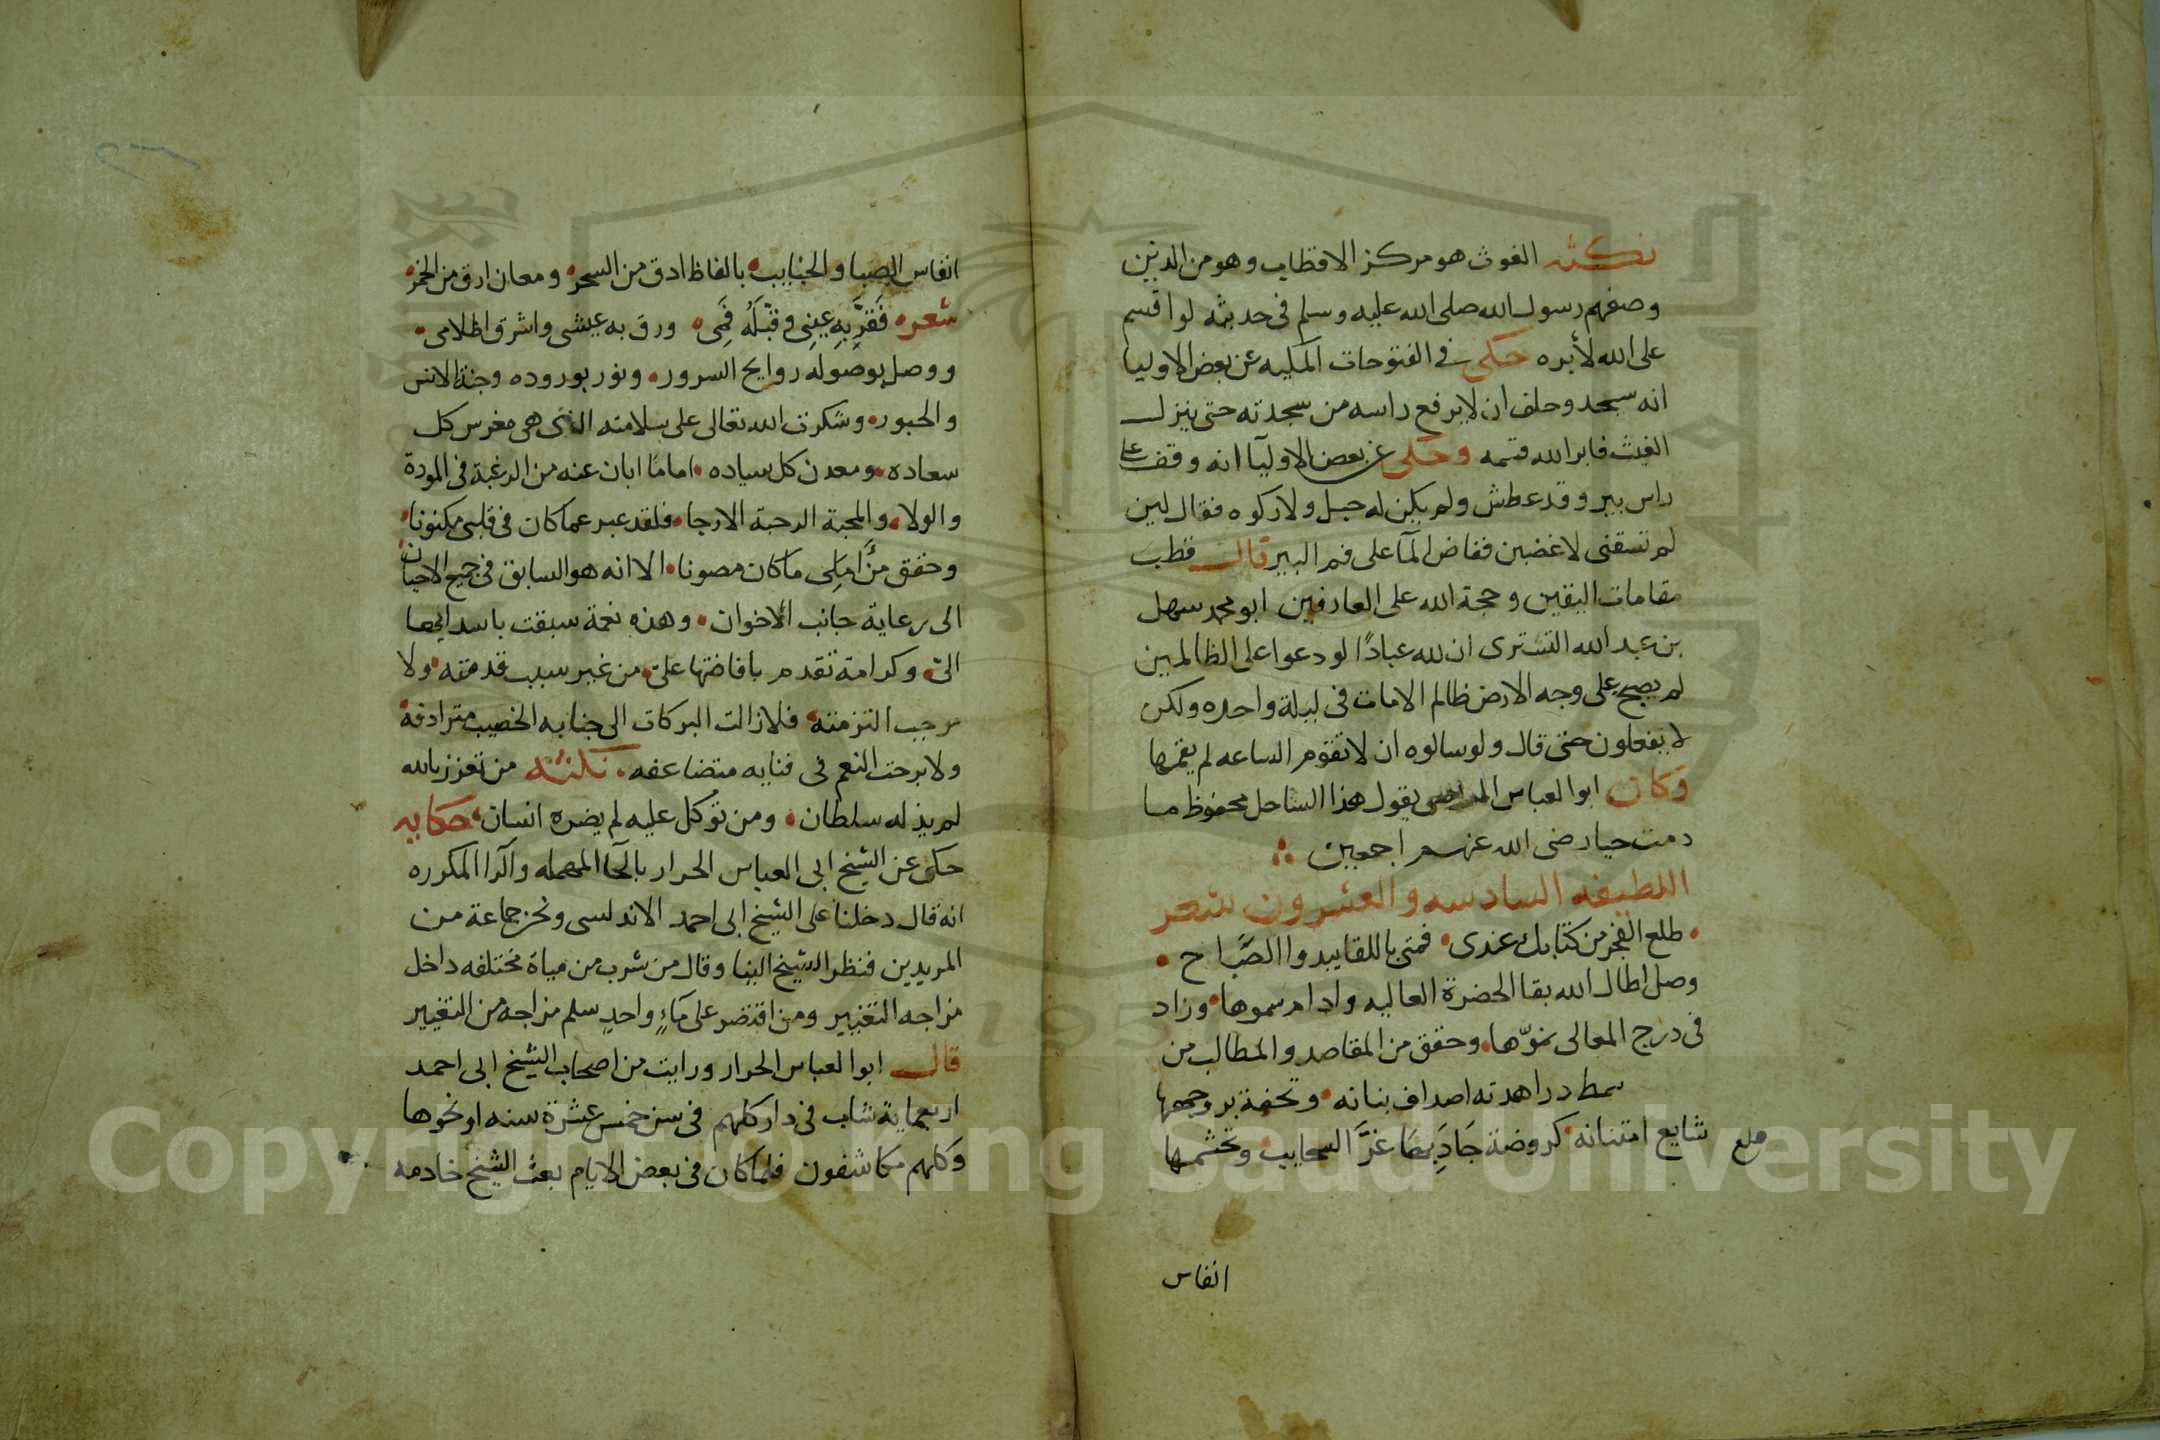 نكته الغوث هو مركز الاقطاب وهو من الذين
وصفهم رسول الله صلى الله عليه وسلم فى حديثه لو اقسم
على الله لأبره حكى فى الفتوحات المكيه عن بعض الاوليا
انه سجد وحلف ان لا يرفع راسه من سجدته حتى ينزل
الغيث فابر الله قسمه وحكى عن بعض الاوليآ انه وقف على
راس بير وقد عطش ولم يكن له حبل ولا ركوه فقال لين
لم تسقنى لاغضبن ففاض المآ على فم البير قال قطب
مقامات اليقين وحجة الله على العارفين ابو محمد سهل
بن عبد الله التسترى ان لله عبادًا لو دعوا على الظالمين
لم يصبح على وجه الارض ظالم الا مات فى ليلة واحده ولكن
لا يفعلون حتى قال ولو سالوه ان لا تقوم الساعه لم يقمها
وكان ابو العباس المرسى يقول هذا الساحل محفوظ ما
دمت حيا رضى الله عنهم اجمعين
اللطيفه السادسه والعشرون شعر
طلع الفجر من كتابك عندى فمتى باللقا يبدوا الصَّباح
وصل اطال الله بقا الحضرة العاليه وادام سموها وزاد
فى درج المعالى نموّها وحقق من المقاصد والمطالب من
سمط در اهدته اصداف بنانه وتحفة بر وجهها
شايع امتنانه كروضة جَادِبها غرَّ السحايب وتحشمها
انفاس
انفاس الصبا والجنايب بالفاظ ادق من السحر ومعان ارق من الخمر
شعر فَقرَّ بِهِ عينِى وقبّلَهُ فَمِى ورق به عيشى واشرق اظلامى
ووصل بوصوله روايح السرور ونور بوروده وجنة الانس
والحبور وشكرت الله تعالى على سلامته التى هى مغرس كل
سعاده ومعدن كل سياده اما مّا ابان عنه من الرغبة فى المودة
والولا والمحبة الرحبة الارجا فلقد عبر عما كان فى قلبى مكنونا
وحقق منَّ املِى ما كان مصونا الا انه هو السابق فى جميع الاحيان
الى رعاية جانب الاخوان وهذه نعمة سبقت باسدايها
الىّ وكرامة تقدم بافاضتها علىّ من غير سبب قدمته ولا
موجب التزمته فلا زالت البركات الى جنابه الخصيب مترادفة
ولا برحت النعم فى فنايه متضاعفه نكته من تعزز بالله
لم يذله سلطان ومن توكل عليه لم يضره انسان حكايه
حكى عن الشيخ ابى العباس الحرار بالحآ المهمله والرآ المكرره
انه قال دخلنا على الشيخ ابى احمد الاندلسى ونحن جماعة من
المريدين فنظر الشيخ الينا وقال من شرب من مياة مختلفه داخل
مزاجه التغيير ومن اقتصر على مَاءٍ واحدٍ سلم مزاجه من التغيير
قال ابو العباس الحرار ورايت من اصحاب الشيخ ابى احمد
اربعماية شاب فى دار كلهم فى سن خمس عشرة سنه او نحوها
وكلهم مكاشفون فلما كان فى بعض الايام بعث الشيخ خادمه
Copyright © King Saud University